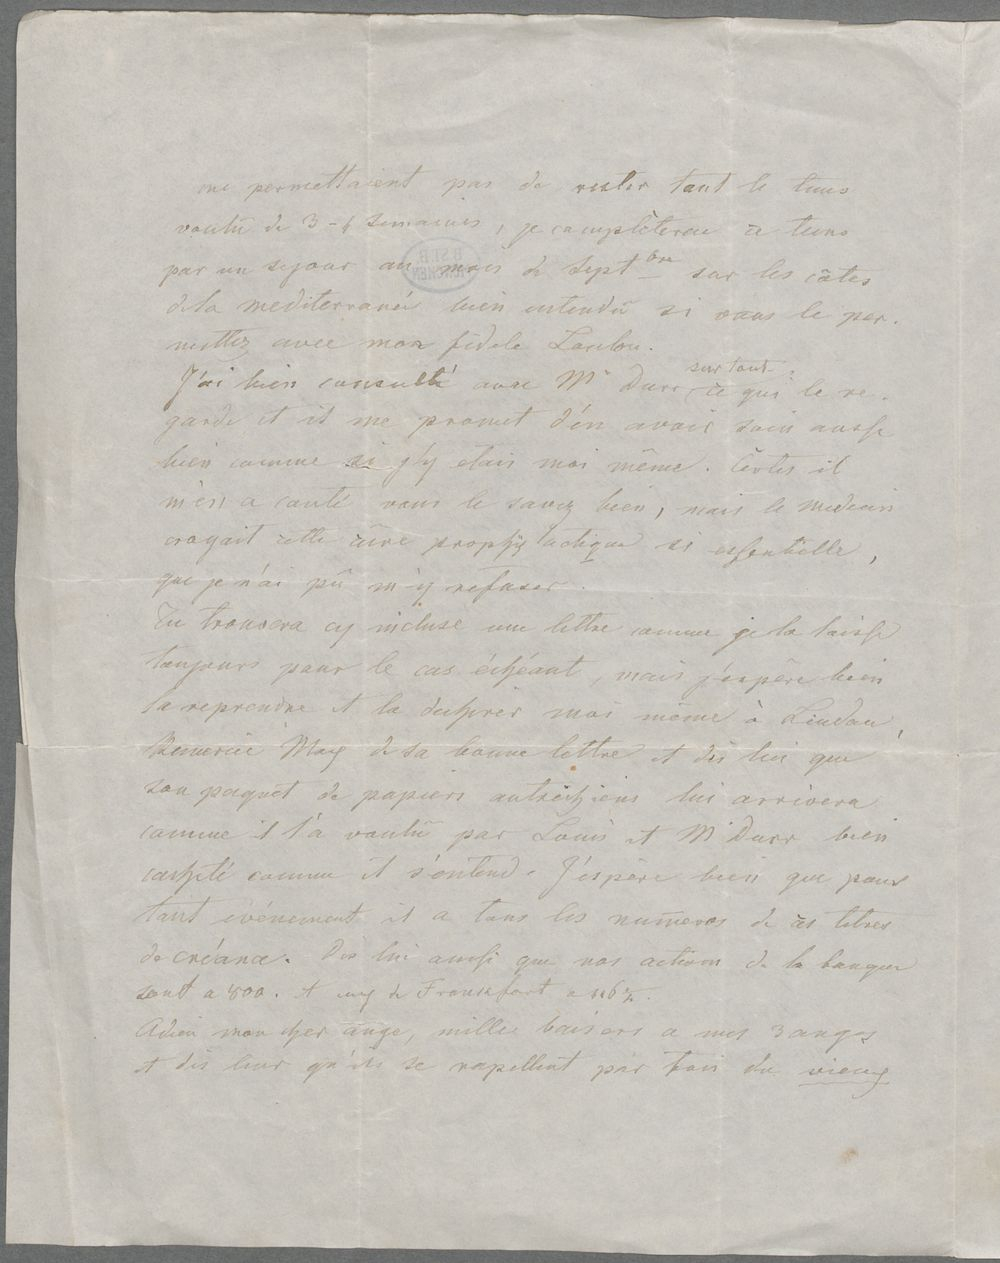 me permettaient pas de rester tant le tems
voulû de 3-4 semaines, je completerai ce tems
par un sejour au mois de Septbre sur les côtes
de la mediterranée bien entendû si vous le per-
mettez avec mon fidele Loulou.
J'ai bien consulté avec Mr Durr surtout ce qui le re-
garde et il me promet d'en avoir soin aussi
bien comme si j'y etais moi même. Certes il
m'en a couté vous le savez bien, mais le medecin
croyait cette cure prophylactique si essentielle,
que je n'ai pû m'y refuser.
Tu trouvera cy incluse une lettre comme je la laisse
toujours pour le cas échéant, mais j'espère bien
la reprendre et la dechirer moi même à Lindau,
Remercie Max de sa bonne lettre et dis lui que
son paquet de papiers autrichiens lui arrivera
comme il l'a voulû par Louis et Mr Durr bien
cacheté comme il s'entend. J'espère bien que pour
tout événement il a tous les numeros de ces titres
de créance. Dis lui aussi que nos actions de la banque
sont a 800. et de Francfort a
Adieu mon cher ange, mille baisers a mes 3 anges
et dis leur qu'ils se rapellent par fois du vieux